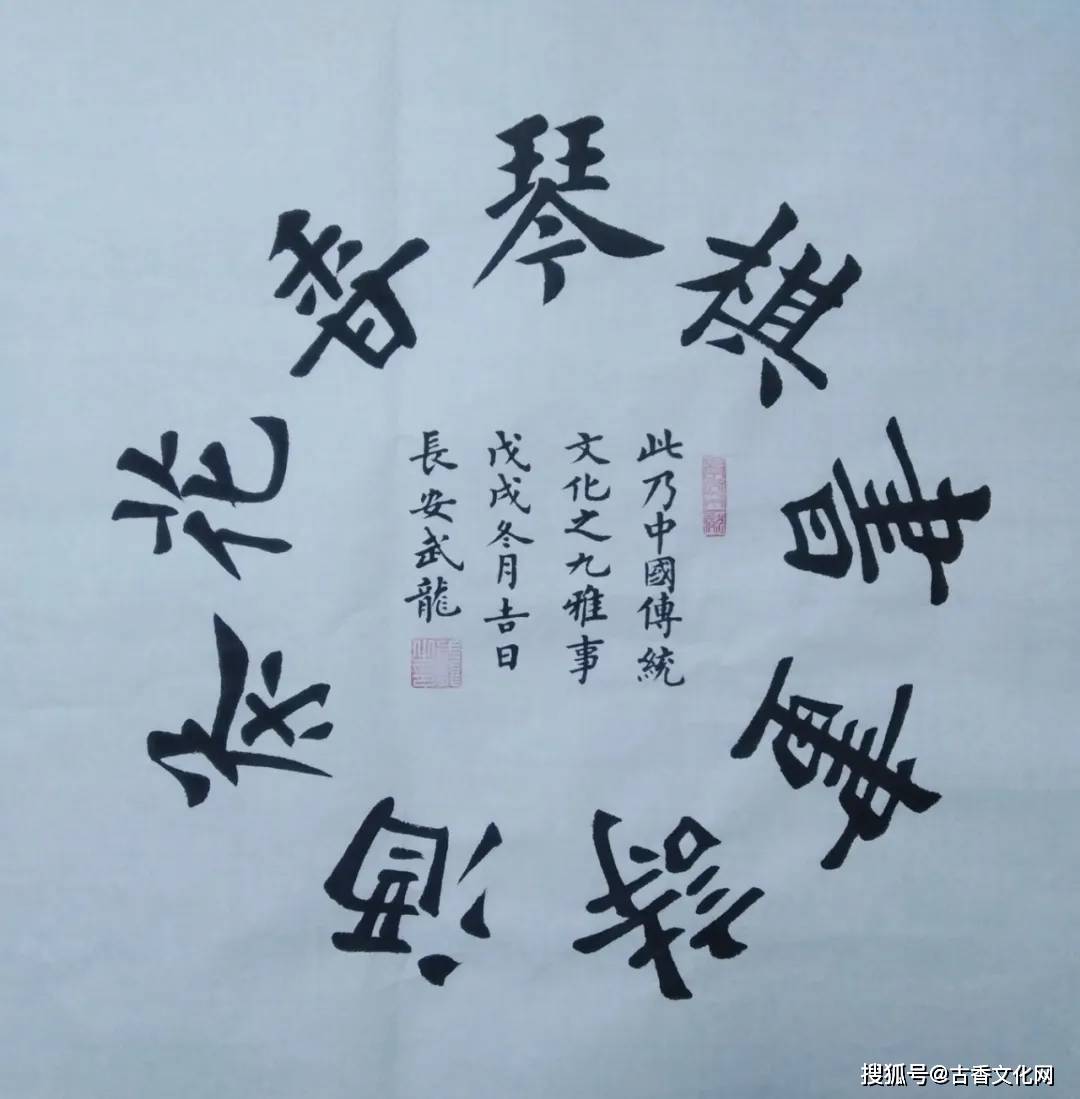 琴棋書畫詩酒茶花香
此乃中國傳統
文化之九雅事
戊戌冬月吉日
長安武龍
搜狐号@古香文化网